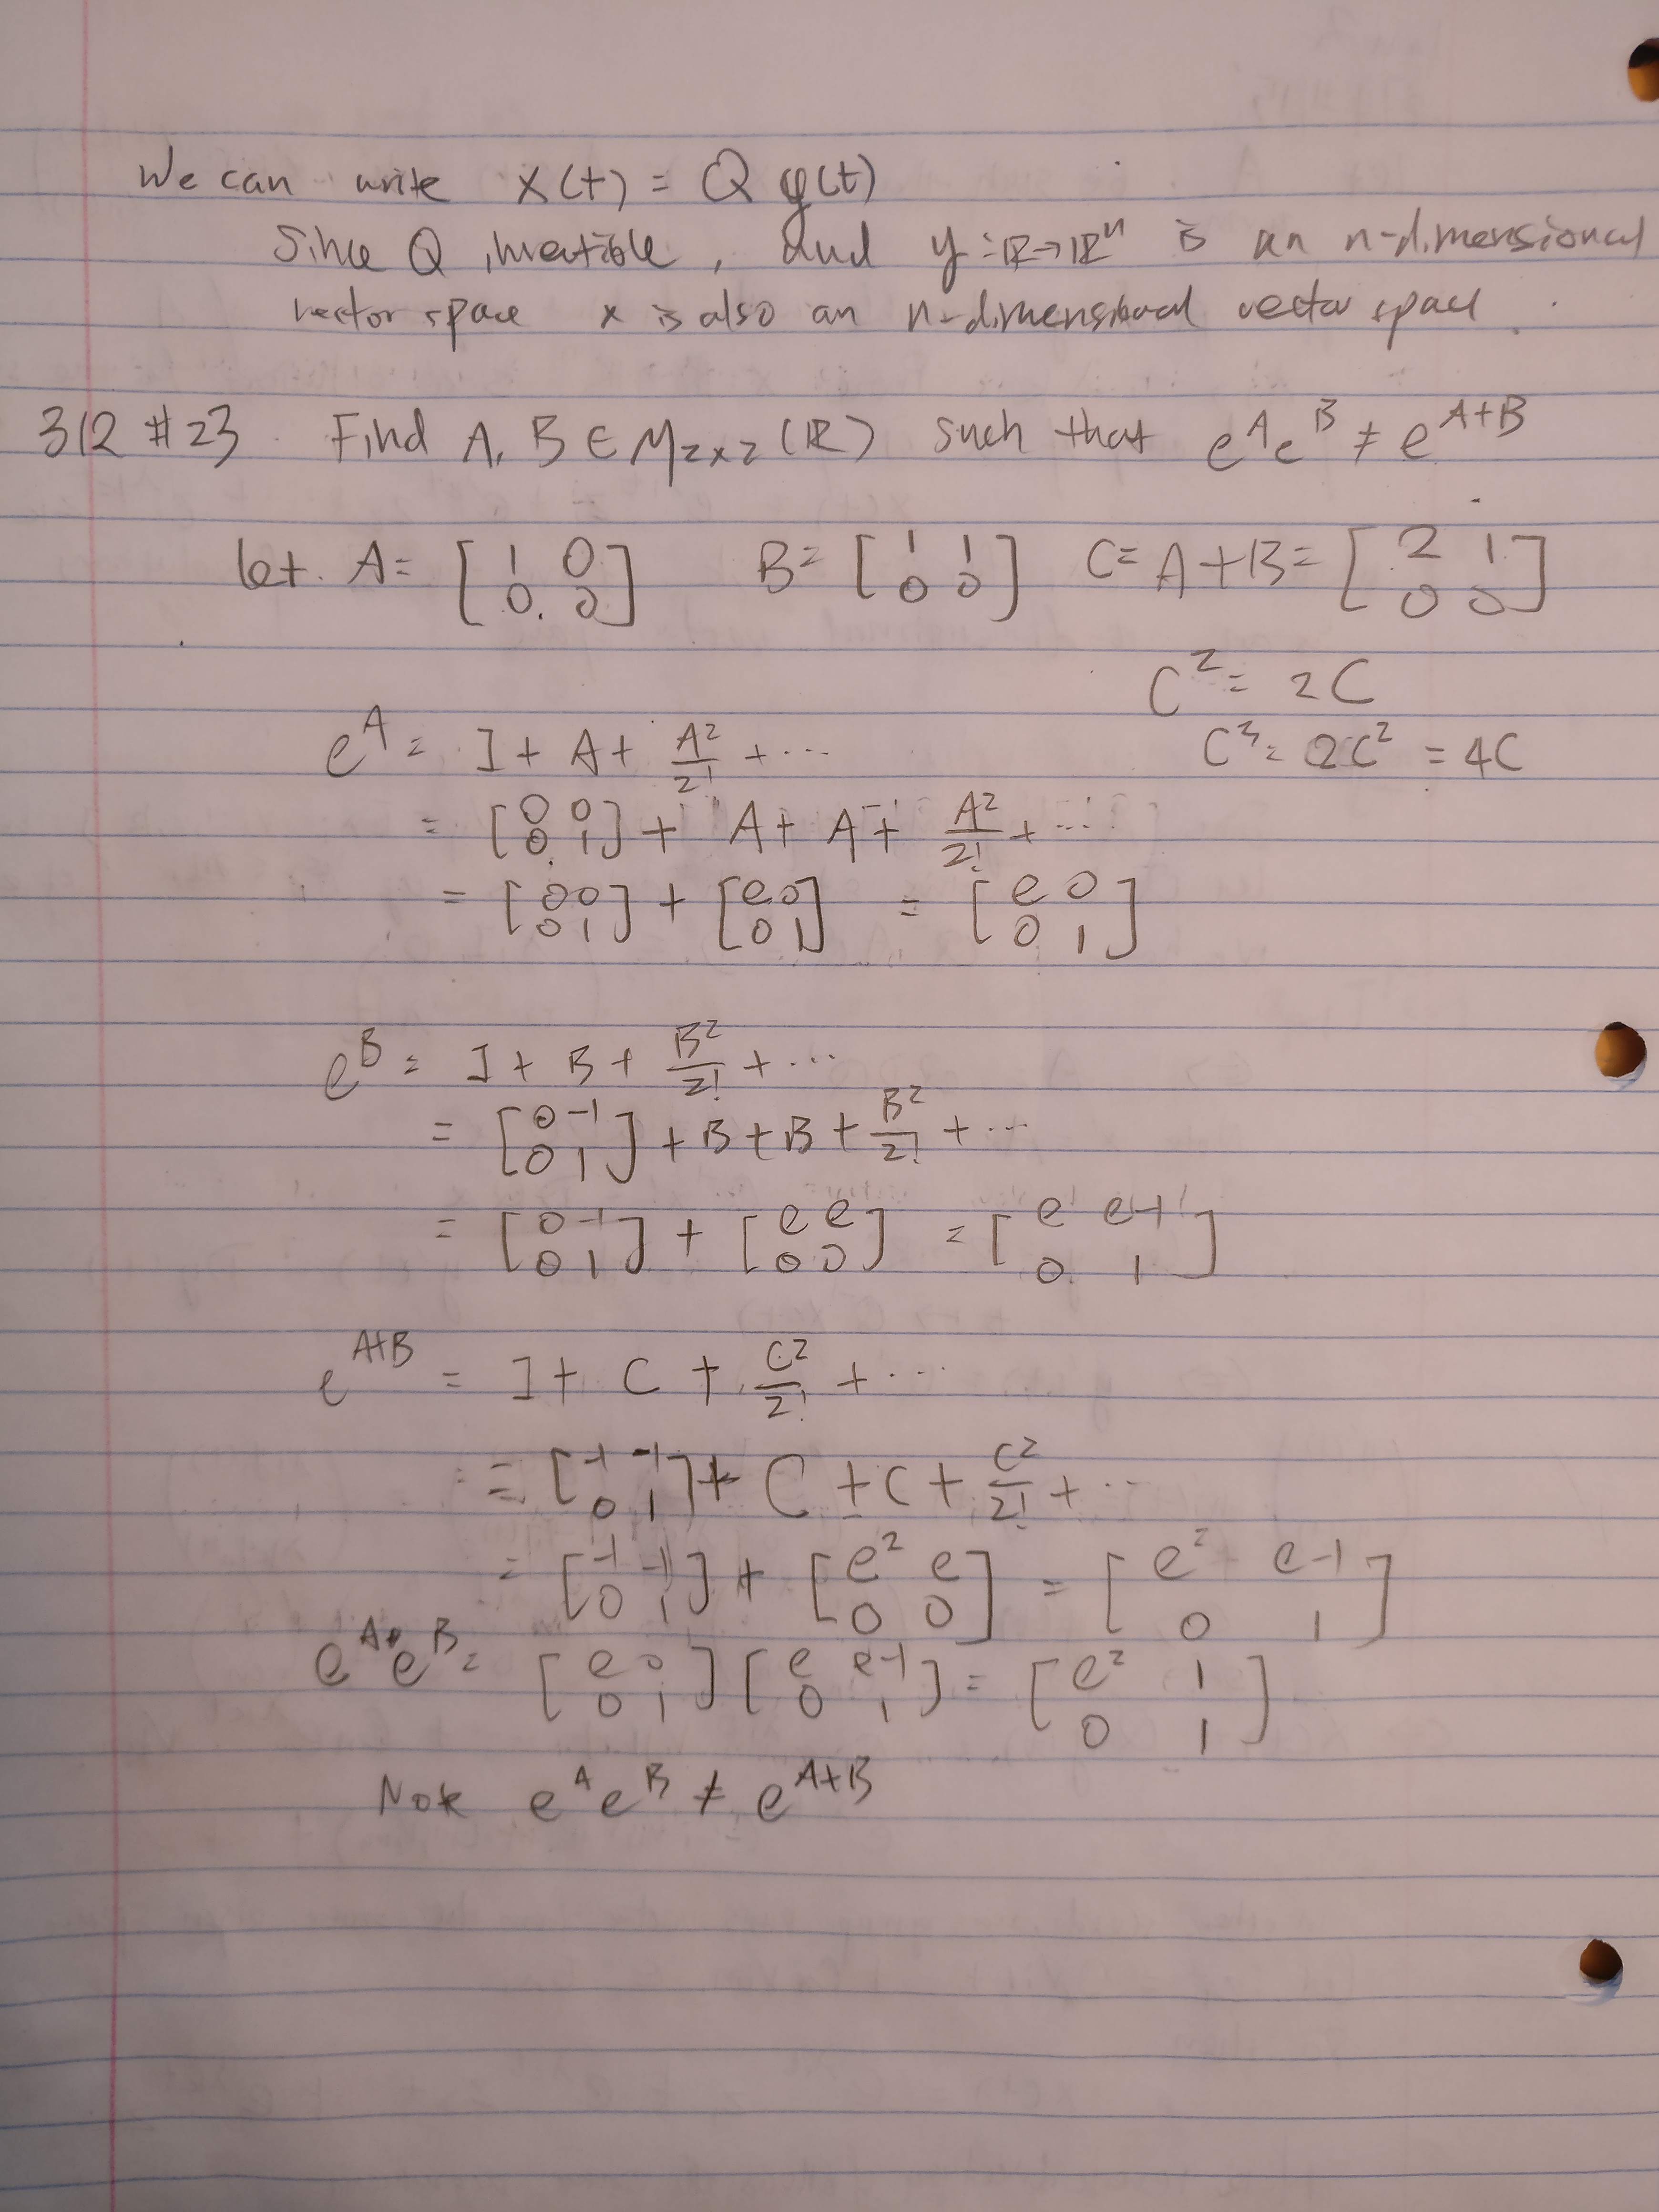 We can write x(t) = Q y(t)
Since Q invertible, and y:ℝ→ℝⁿ is an n-dimensional
vector space x is also an n-dimensional vector space.
312 #23 Find A, B ∈ M₂ₓ₂(ℝ) such that e^A e^B ≠ e^{A+B}
let A = [1 0; 0 0] B = [1 1; 0 0] C = A+B = [2 1; 0 0]
C² = 2C
C³ = 2C² = 4C
e^A = I + A + A²/2! + ⋯
= [0 0; 0 1] + A + A + A²/2! + ⋯
= [0 0; 0 1] + [e 0; 0 1] = [e 0; 0 1]
e^B = I + B + B²/2! + ⋯
= [0 -1; 0 1] + B + B + B²/2! + ⋯
= [0 -1; 0 1] + [e e; 0 0] = [e e-1; 0 1]
e^{A+B} = I + C + C²/2! + ⋯
= [-1 -1; 0 1] + C + C + C²/2! + ⋯
= [-1 -1; 0 1] + [e² e; 0 0] = [e² e-1; 0 1]
e^A e^B = [e 0; 0 1] [e e-1; 0 1] = [e² 1; 0 1]
Note e^A e^B ≠ e^{A+B}